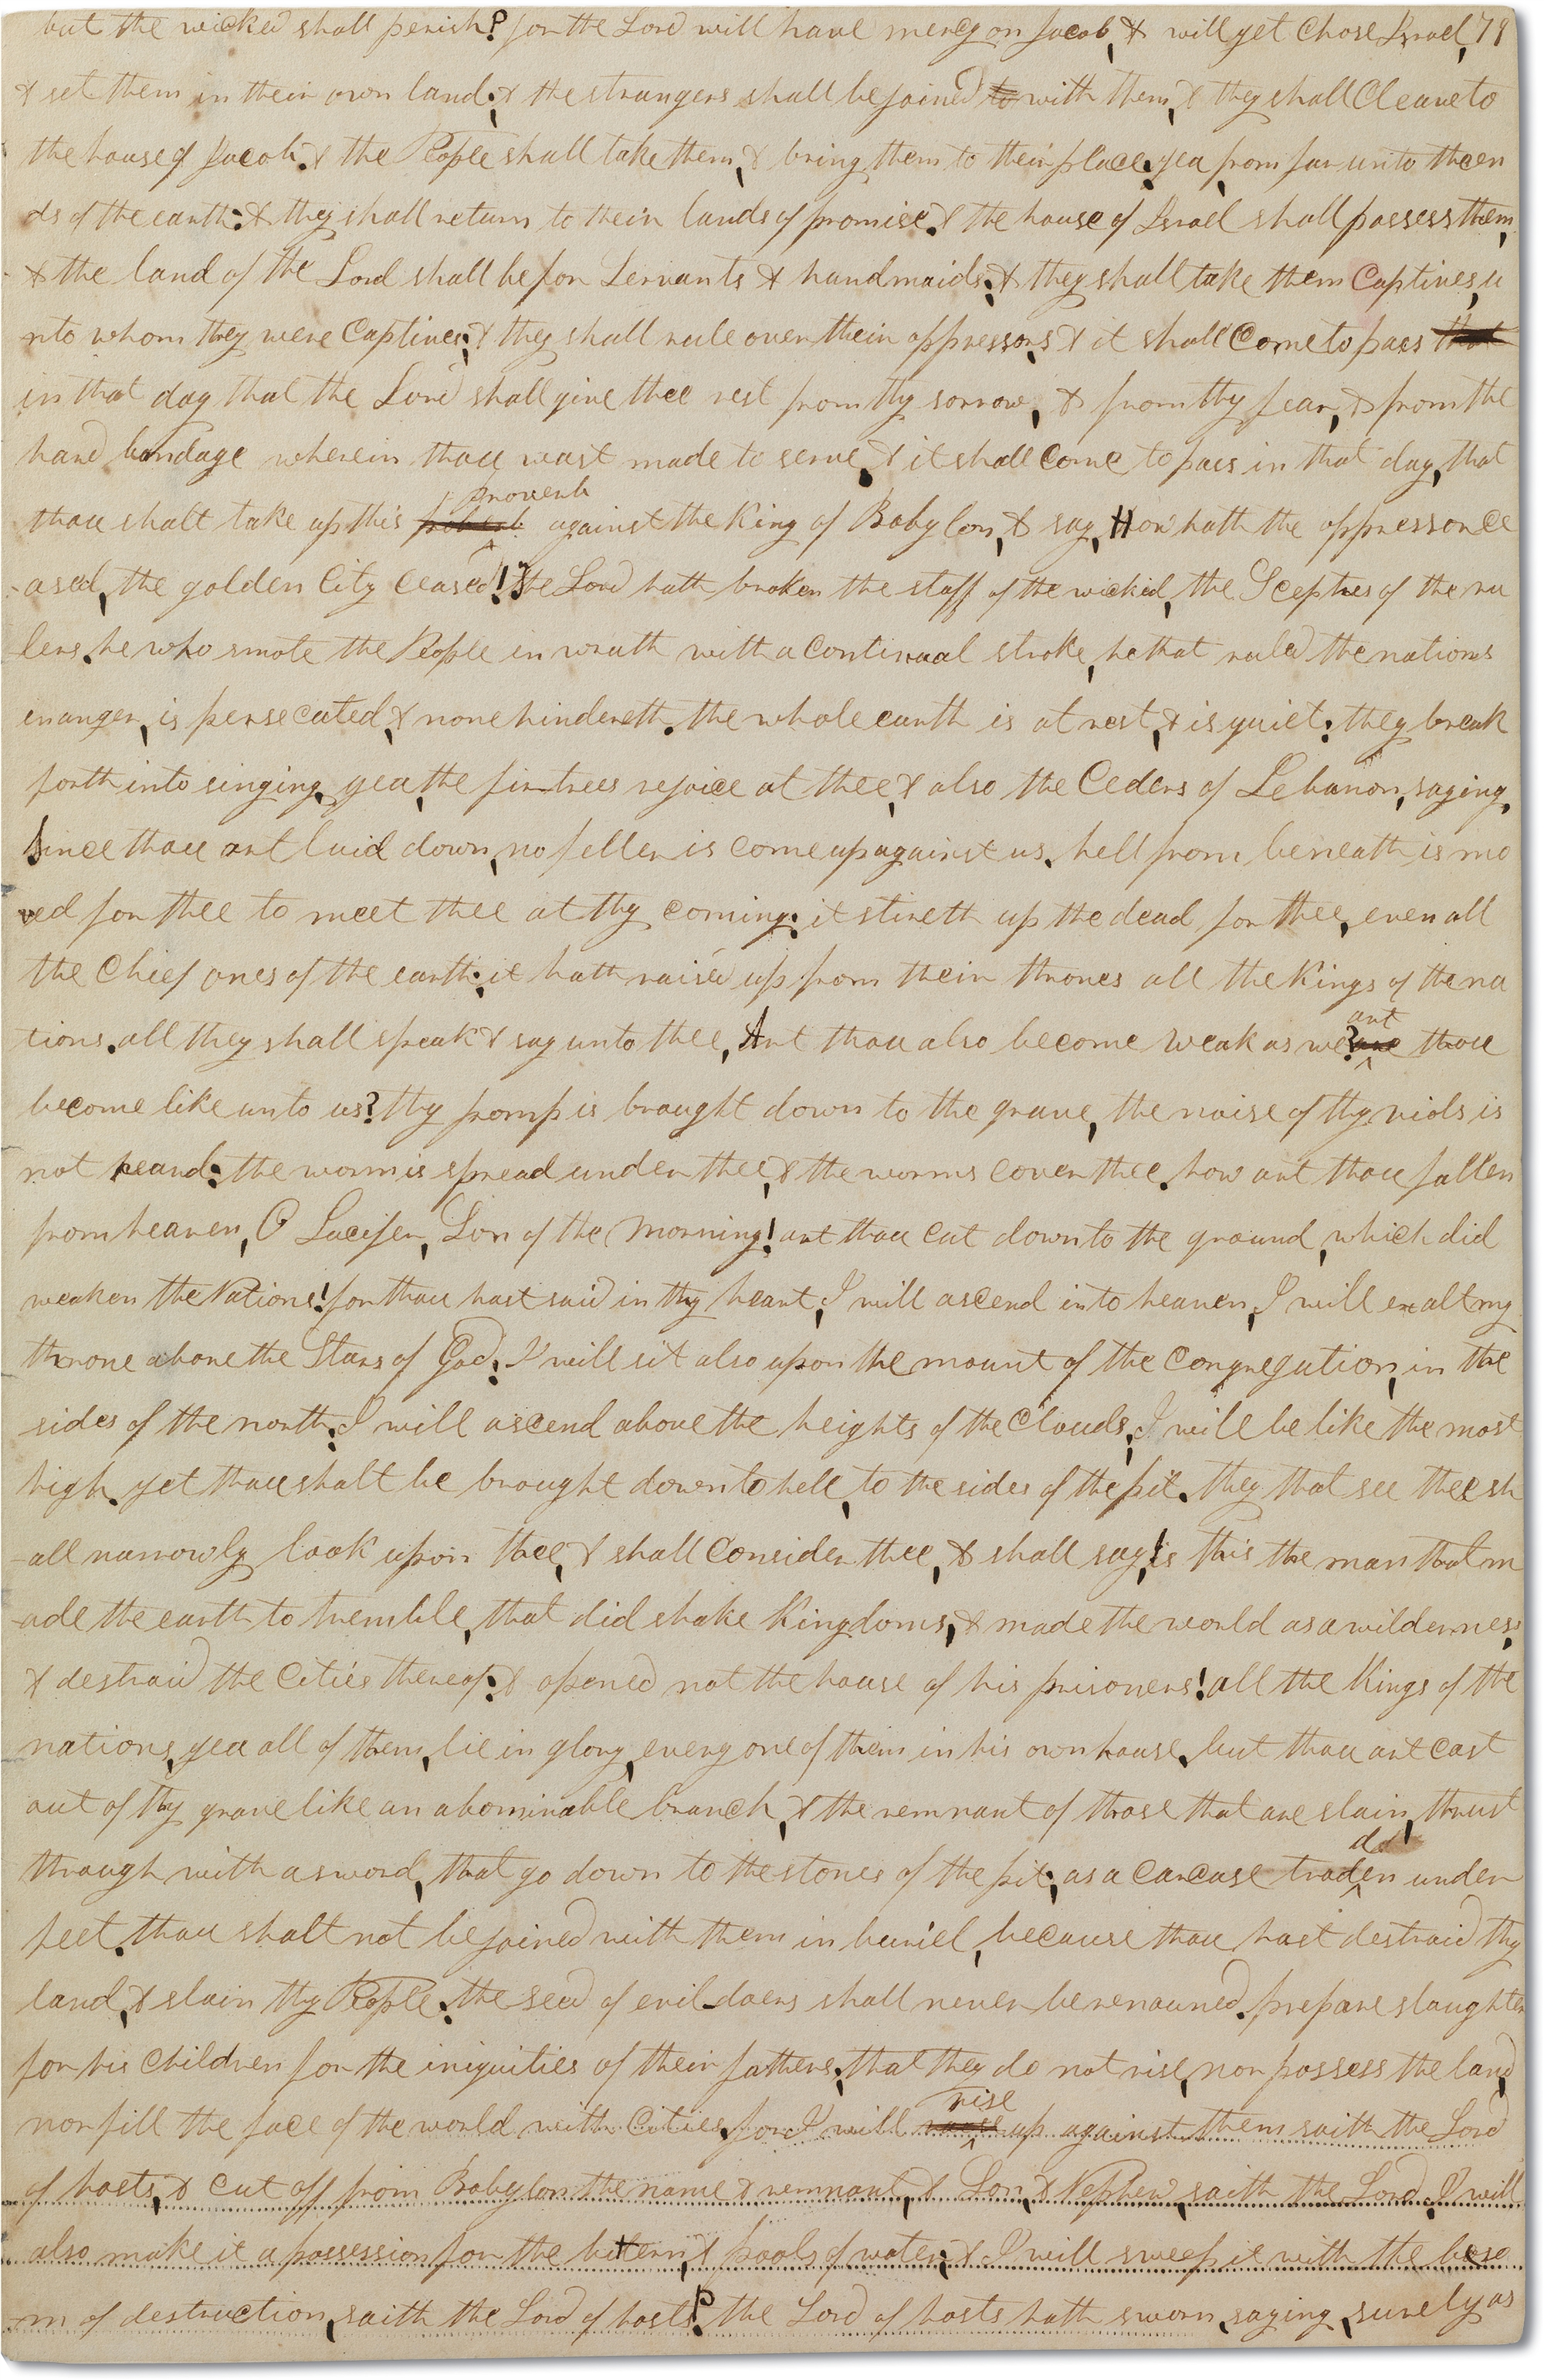 but the wicked shall perish? for the Lord will have mercy on Jacob, & will yet Chose Israel, 79
& set them in their own land; & the strangers shall be joined to with them, & they shall Cleave to
the house of Jacob. & the People shall take them, & bring them to their place; yea, from far unto the en
ds of the earth: & they shall return to their lands of promise. & the house of Israel shall possess them,
& the land of the Lord shall be for Servants & handmaids; & they shall take them Captives, u
nto whom they were Captives; & they shall rule over their oppressors, & it shall Come to pass that
in that day that the Lord shall give thee rest from thy sorrow, & from thy fear, & from the
hard bondage wherein thou wast made to serve. & it shall Come to pass in that day, that
proverb
thou shalt take up this against the King of Babylon, & say, How hath the oppressor ce
-ased, the golden City Ceased! the Lord hath broken the staff of the wicked, the Scepters of the ru
lers. he who smote the People in wrath with a Continual stroke, he that ruled the nations
in anger, is persecuted, & none hindereth. the whole earth is at rest, & is quiet: they break
forth into singing. yea, the fir-trees rejoice at thee, & also the Ceders of Lebanon, saying,
Since thou art laid down, no feller is come up against us. hell from beneath is mo
ved for thee to meet thee at thy coming: it stireth up the dead for thee, even all
the Chief ones of the earth; it hath raised up from their thrones all the Kings of the na
tions. all they shall speak & say unto thee, Art thou also become weak as we? are thou
art
become like unto us? thy pomp is brought down to the grave, the noise of thy viols is
not heard: the worm is spread under thee, & the worms cover thee. how art thou fallen
from heaven, O Lucifer, Son of the Morning! art thou Cut down to the ground, which did
weaken the Nations! for thou hast said in thy heart, I will ascend into heaven, I will exalt my
throne above the Stars of God: I will sit also upon the mount of the Congregation, in the
sides of the north: I will ascend above the heights of the Clouds, I will be like the most
high. yet thou shalt be brought down to hell, to the sides of the pit. they that see thee sh
-all narrowly look upon thee, & shall Consider thee, & shall say, Is this the man that m
-ade the earth to tremble, that did shake Kingdoms, & made the world as a wilderness,
& destroid the Cities thereof; & opened not the house of his prisoners! all the Kings of the
nations, yea all of them, lie in glory, every one of them in his own house. but thou art cast
out of thy grave like an abominable branch, & the remnant of those that are slain, thrust
dd
through with a sword, that go down to the stones of the pit; as a Carcase troden under
feet. thou shalt not be joined with them in buriel, because thou hast destroid thy
land, & slain thy People: the seed of evil-doers shall never be renouned. prepare slaughter
for his Children for the iniquities of their fathers; that they do not rise, nor possess the land,
rise
nor fill the face of the world with Cities. for I will up against them saith the Lord
of hosts, & Cut off from Babylon the name & remnant, & Son, & Nephew, saith the Lord. I will
also make it a possession for the bittern, & pools of water; & I will sweep it with the beso
-m of destruction, saith the Lord of hosts? the Lord of hosts hath sworn, saying, surely as